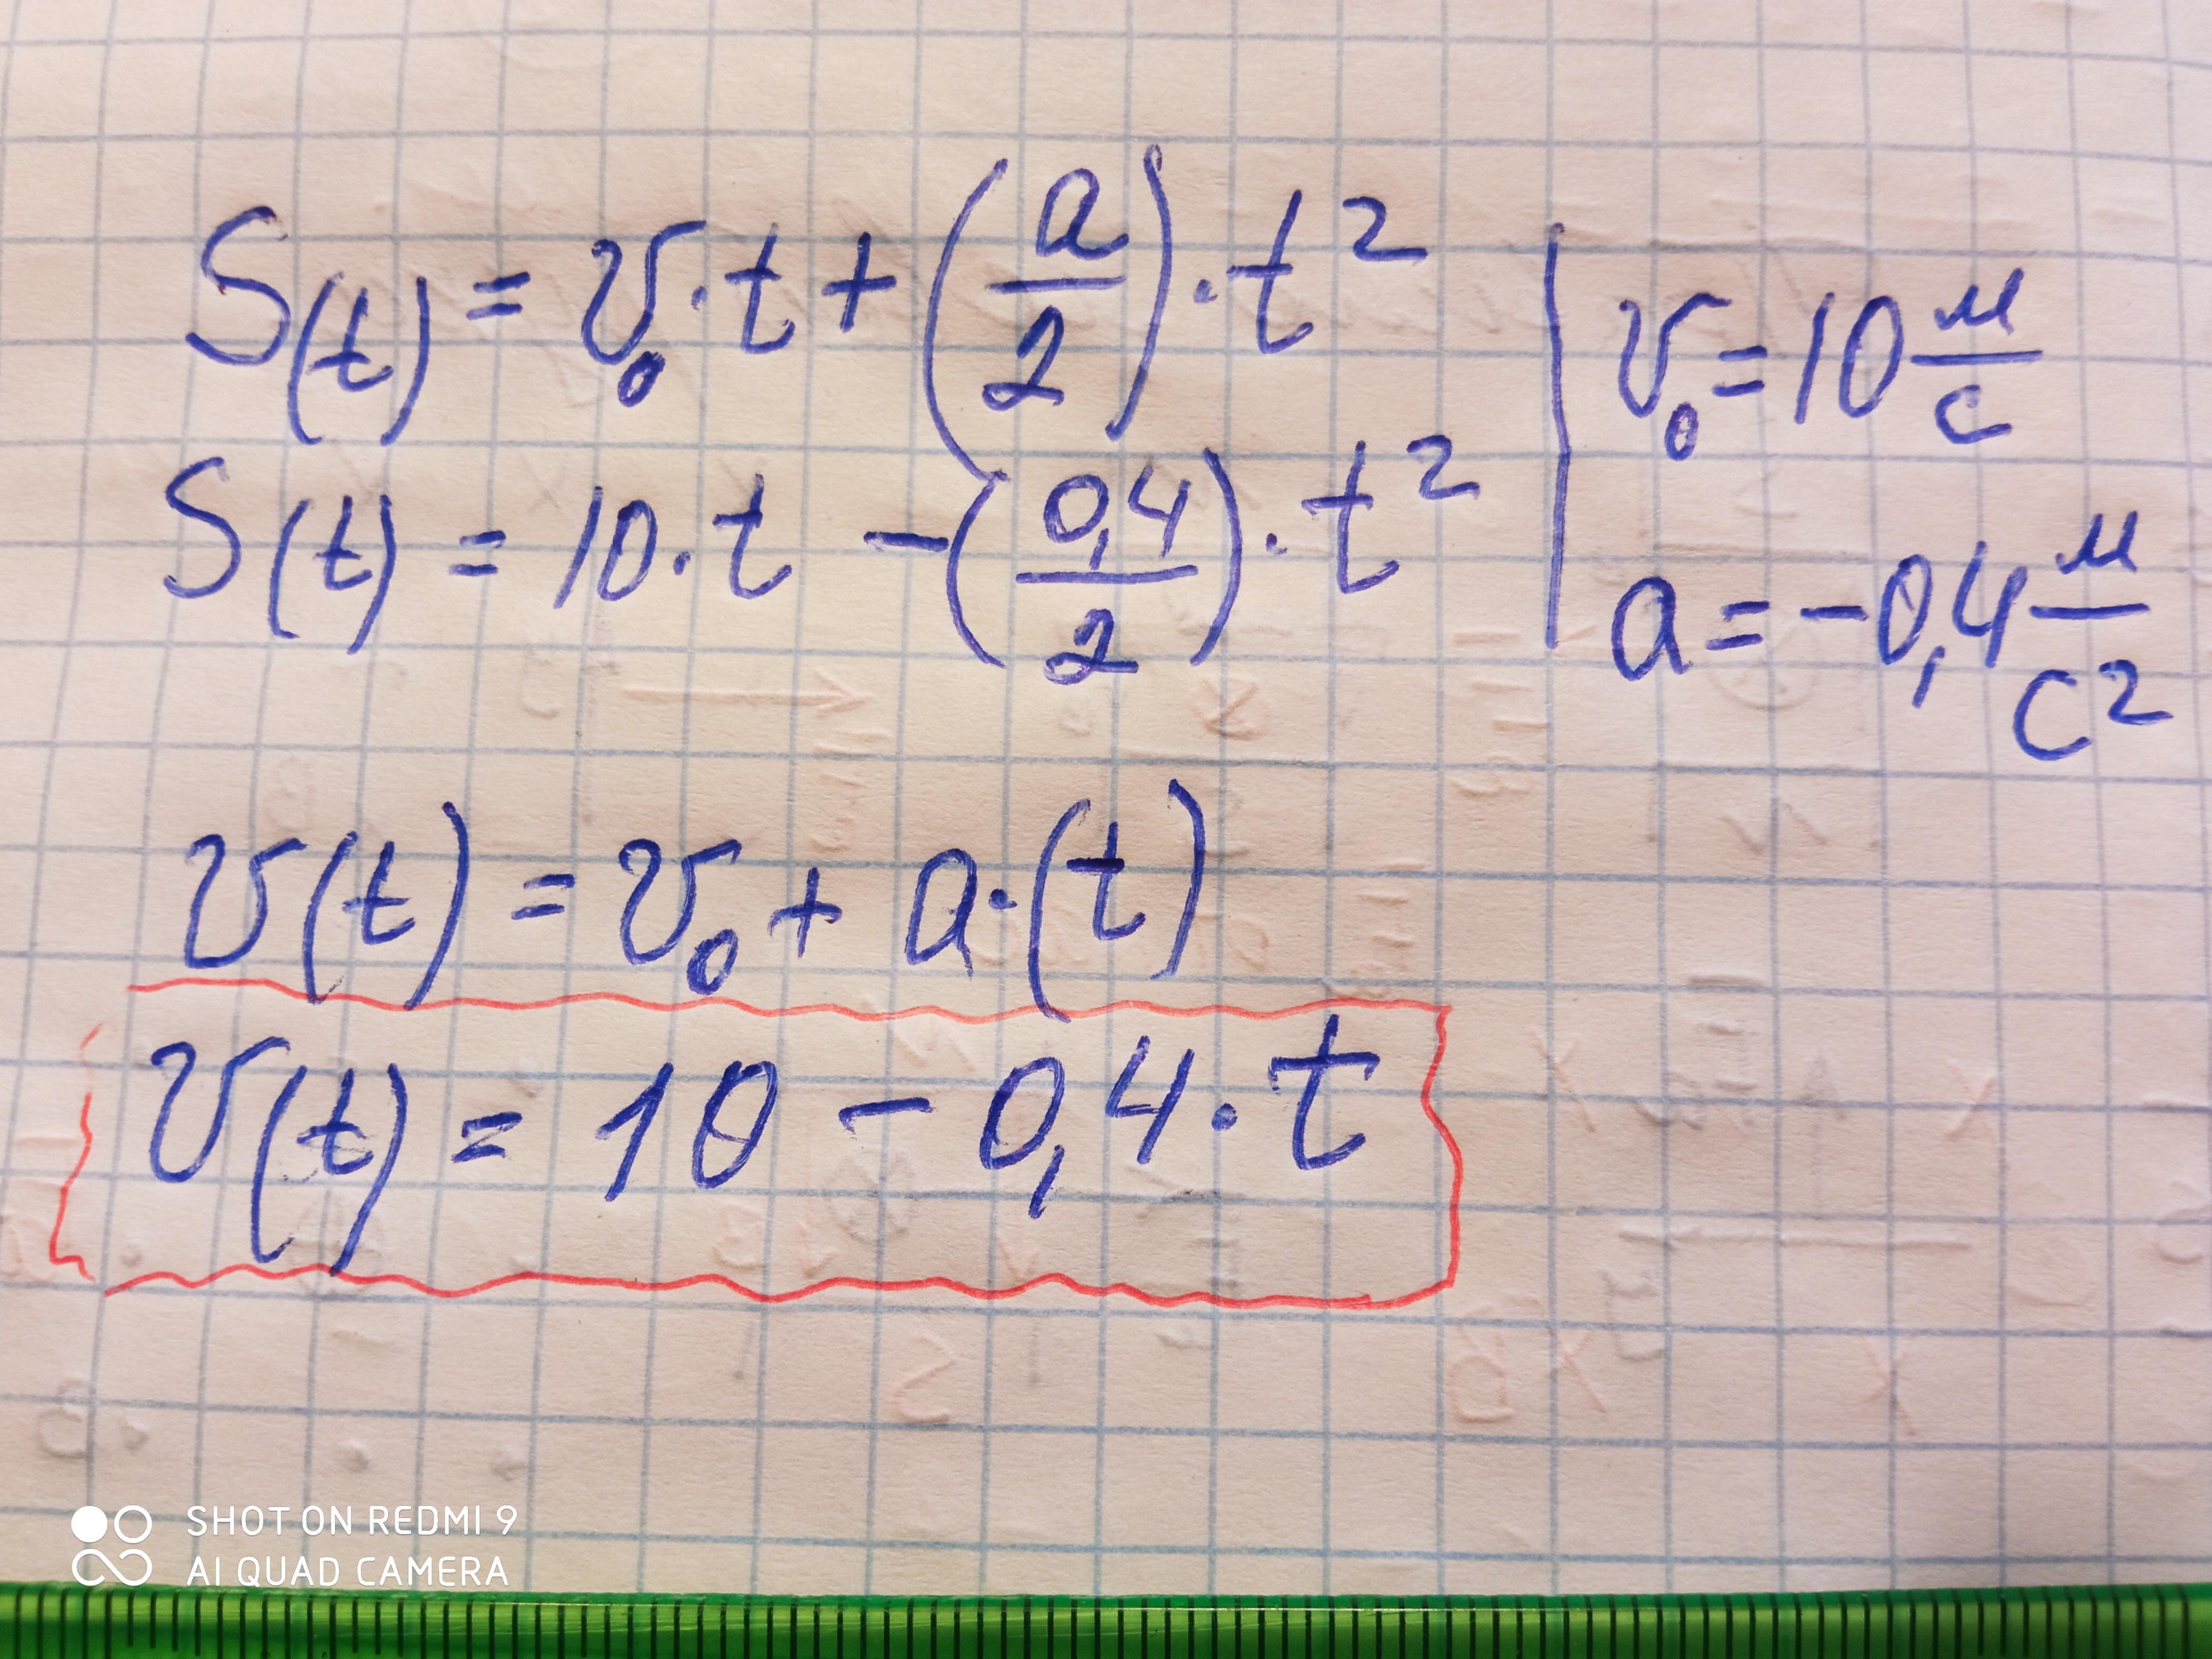 S(t) = v₀·t + (a/2)·t²
S(t) = 10·t − (0,4/2)·t²
v₀ = 10 м/с
a = −0,4 м/с²
v(t) = v₀ + a·(t)
v(t) = 10 − 0,4·t
SHOT ON REDMI 9
AI QUAD CAMERA